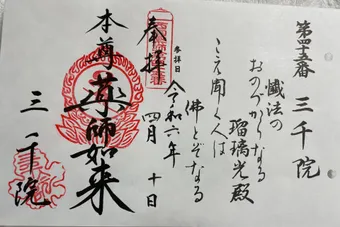 第四十五番 三千院
懺法の
おのづからなる
瑠璃光殿
こえ聞く人は
佛とぞなる
参拝日
令和六年
四月十日
奉拝
本尊 薬師如来
三千院